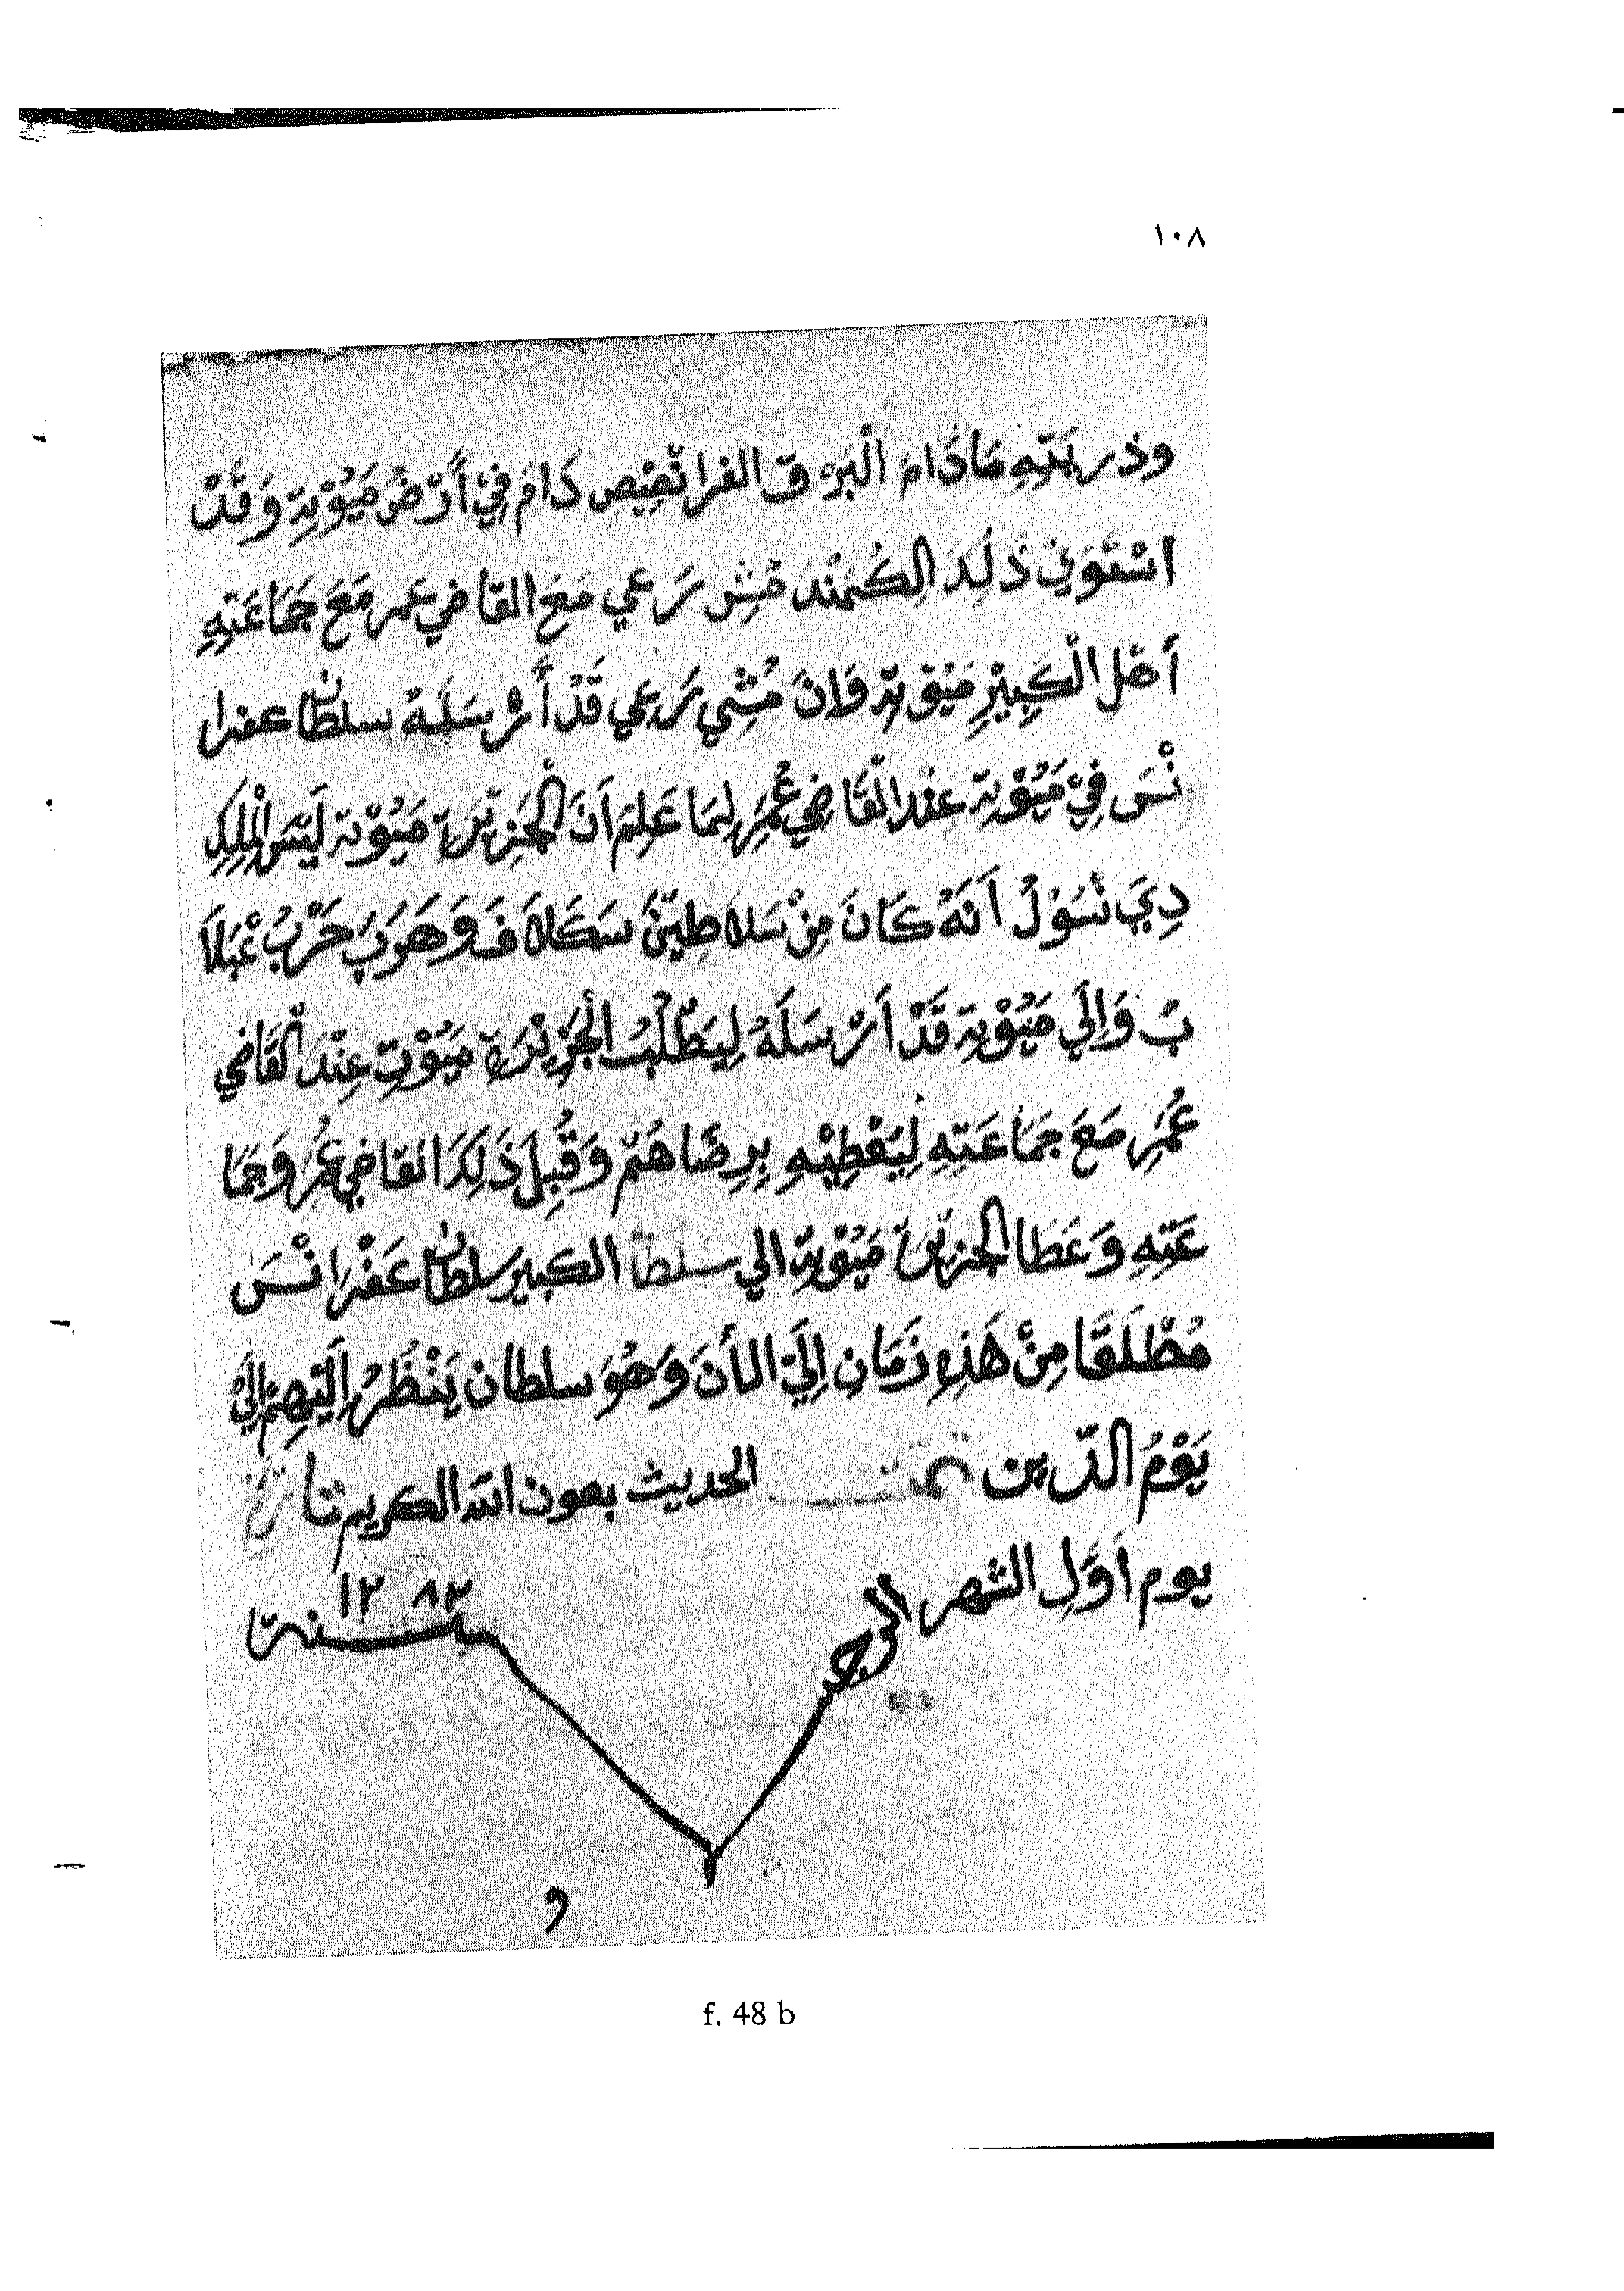 ١٠٨
وذريته مَادَامَ الْبَرْق الفرانصيص دَامَ فِيْ أَرْضُ مَيُوْتِة وَقَدْ
اسْتَوَي ذَلِكَ الكُمَنْد مُشِ رَعِي مَعَ القاضِي عمر مَعَ جَمَاعَتِهِ
أَهْل الْكَبِيْرِ مَيُوْتِة وَانَ مُشِي رَعِي قَدْ أَرْسَلَهُ سلطان عفرا
نْسَ فِيْ مَيُوْتِة عِنْد الْقَاضِي عُمَرِ لِمَا عَلِمَ اَنَ الْجَزِيْرَة مَيُوْتة لَيْسَ لْمَلِكِ
دِيَ سُوْلُ اَنَهُ كَانَ مِنْ سَلَاطِيْنَ سَكَلَافَ وَهَرَبَ حَرْبُ عْبَلَا
بُ وَاِلَي مَيُوْتِة قَدْ اَرْسَلَهُ لِيَطْلُبُ الْجَزِيْرَة مَيُوْتِ عِنْدَ الْقَاضِي
عُمَرِ مَعَ جَمَاعَتِهِ لِيَعْطِيْهِ بِرِضَاهُمْ وَقُبِلَ ذَلِكَ القاضِي عُمَر وَجَمَا
عَتِهِ وَعَطَا الجزيْرَة مَيُوْتِة الي سلطا الكبير سلطان عَفْرَانْسَ
مُطْلَقًا مِنْ هَذِهِ زَمَانِ اِلَيْ الأنَ وَهُوَ سلطان يَنْظُرُ اِلَيْهِمْ اِلَيْ
يَوْمُ الدّين تمت الحديث بعون الله الكريم تاريخ
يوم اَوَّلِ الشهر الرجب سنة ١٢٨٢
و
f. 48 b